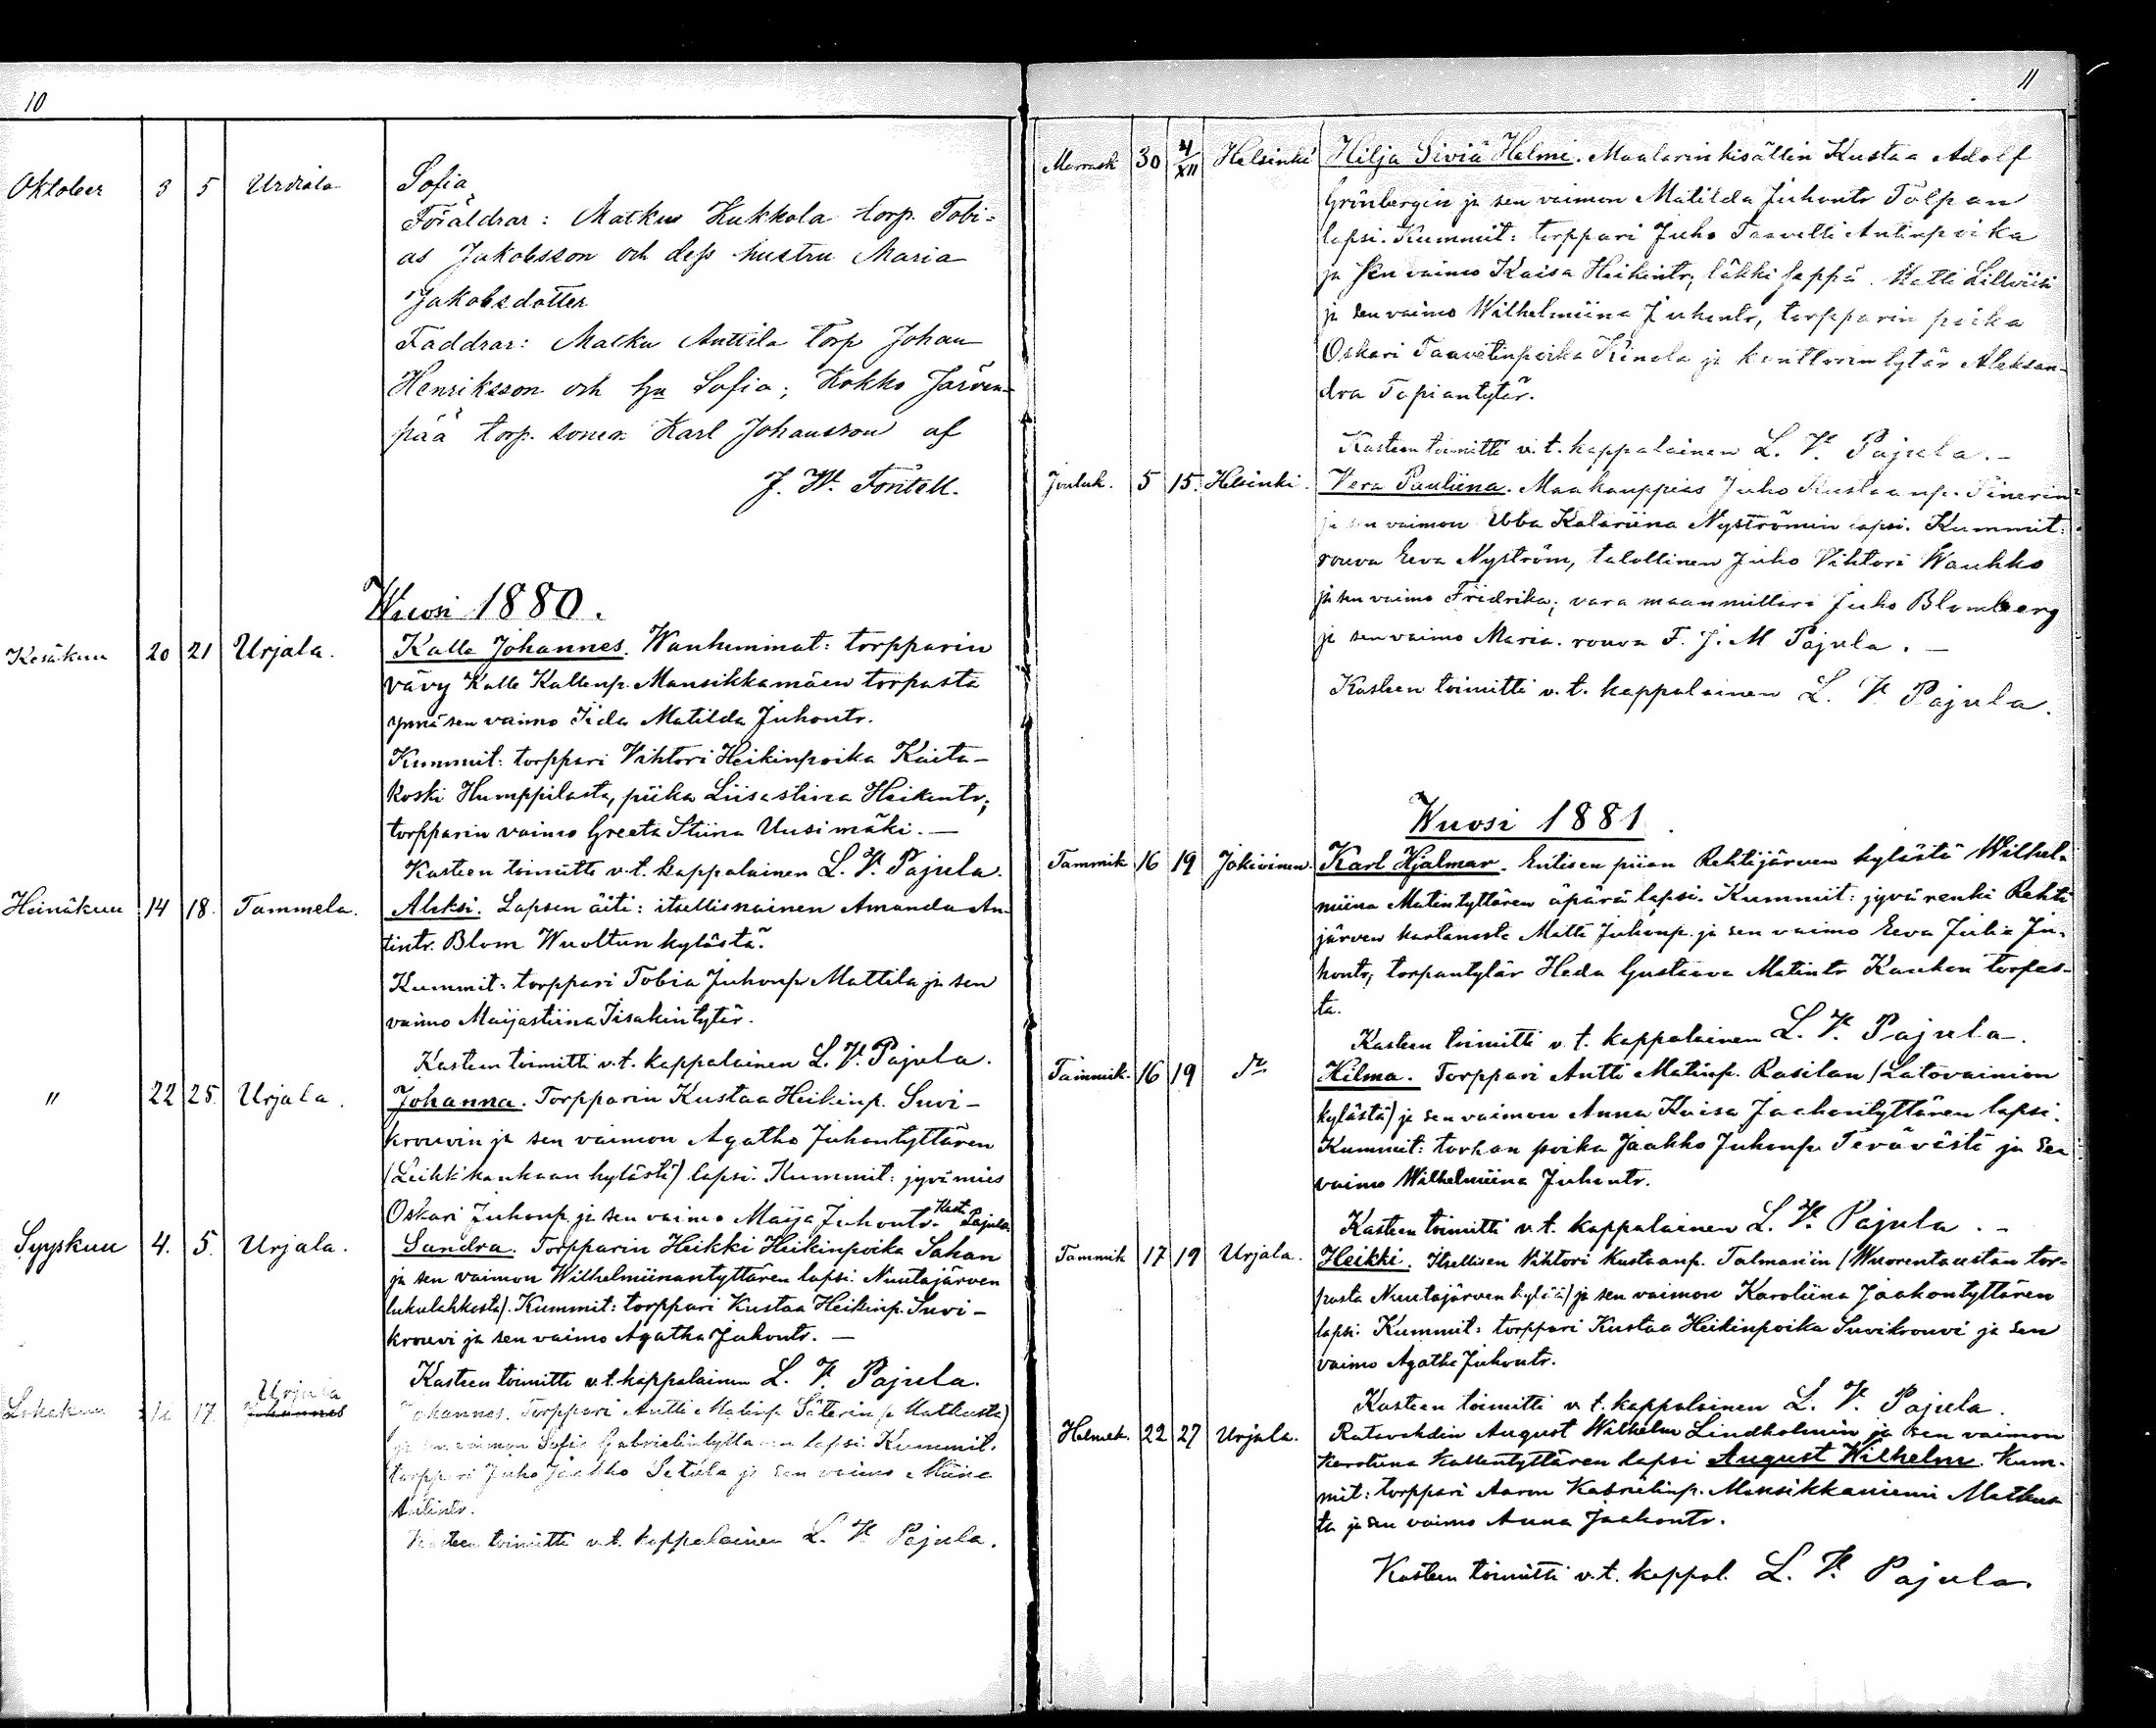 10
Oktober 3 5 Urdiala Sofia
Föräldrar: Matku Kukkola torp. Tobi=
as Jakobsson och dess hustru Maria
Jakobsdotter
Faddrar: Matku Anttila torp Johan
Henriksson och hu Sofia; Kokko Järven-
pää torp. sonen Karl Johansson af
J. W. Fontell.
Wuosi 1880.
Kesäkuu 20 21 Urjala. Kalle Johannes. Wanhemmat: torpparin
vävy Kalle Kallenp. Mansikkamäen torpasta
ynnä sen vaimo Iida Matilda Juhontr.
Kummit: torppari Vihtori Heikinpoika Kaita-
koski Humppilasta, piika Liisastina Heikintr;
torpparin vaimo Greeta Stiina Uusimäki. —
Kasteen toimitti v.t. kappalainen L. V. Pajula.
Heinäkuu 14 18. Tammela. Aleksi. Lapsen äiti: itsellisnainen Amanda An-
tintr. Blom Wuoltun kylästä.
Kummit: torppari Tobia Juhonp Mattila ja sen
vaimo Maijastiina Iisakintytär.
Kasteen toimitti v.t. kappalainen L. V. Pajula.
" 22 25. Urjala. Johanna. Torpparin Kustaa Heikinp. Suvi-
krouvin ja sen vaimon Agatha Juhontyttären
kylästä) lapsi. Kummit: jyvämies
Oskari Juhonp. ja sen vaimo Maija Juhontr. Kast. Pajula.
Syyskuu 4. 5. Urjala. Sandra. Torpparin Heikki Heikinpoika Sahan
ja sen vaimon Wilhelmiinantyttären lapsi. Nuutajärven
lukulahkosta). Kummit: torppari Kustaa Heikinp. Suvi-
krouvi ja sen vaimo Agatha Juhontr. —
Kasteen toimitti v.t. kappalainen L. V. Pajula.
Urjala
Lokakuu 17 Johannes Johannes. Torppari Antti Matinp Säterin Matkusta)
ja sen vaimon Sofia Gabrielintyttären lapsi. Kummit.
torppari Juho Jaakko Setälä ja sen vaimo Miina
Antintr.
Kasteen toimitti v.t. kappalainen L. V. Pajula.
11
Marrask 30 4/XII Helsinki Hilja Siviä Helmi. Maalarin kisällin Kustaa Adolf
Grönbergin ja sen vaimon Matilda Juhontr Tölpan
lapsi. Kummit: torppari Juho Taavetti Antinpoika
ja sen vaimo Kaisa Heikintr; läkkiseppä Matti
ja sen vaimo Wilhelmiina Juhontr, torpparin poika
Oskari Taavetinpoika Kinola ja kanttorin tytär Aleksan-
dra Topiantytär.
Kasteen toimitti v.t. kappalainen L. V. Pajula. -
Jouluk. 5 15. Helsinki. Vera Pauliina. Maakauppias Juho Kustaanp. Sinerin
ja sen vaimon Ebba Katariina Nyströmin lapsi. Kummit:
rouva Eeva Nyström, talollinen Juho Vihtori Wauhko
ja sen vaimo Fridrika; vara maanmittari Juho Blomberg
ja sen vaimo Maria. rouva F. J. M Pajula. —
Kasteen toimitti v.t. kappalainen L. V. Pajula.
Wuosi 1881.
Tammik 16 19 Jokioinen. Karl Hjalmar. Entisen piian Rehtijärven kylästä Wilhel-
miina Matintyttären äpärä lapsi. Kummit: jyvä renki Rehti
järven kartanosta Matti Juhonp. ja sen vaimo Eeva Julia Ju-
hontr; torpantytär Heda Gustaava Matintr Kauhon torpas-
ta.
Kasteen toimitti v.t. kappalainen L. V. Pajula.
Tammik. 16 19 do Hilma. Torppari Antti Matinp. Rasilan (Latovainion
kylästä) ja sen vaimon Anna Kaisa Jaakontyttären lapsi.
Kummit: torpan poika Jaakko Juhonp. Terävästä ja sen
vaimo Wilhelmiina Juhontr.
Kasteen toimitti v.t. kappalainen L. V. Pajula. -
Tammik 17 19 Urjala. Heikki. Itsellisen Vihtori Kustaanp. Talmanin (Wuorentaustan tor-
pasta Nuutajärven kylää) ja sen vaimon Karoliina Jaakontyttären
lapsi. Kummit: torppari Kustaa Heikinpoika Suvikrouvi ja sen
vaimo Agatha Juhontr.
Kasteen toimitti v.t. kappalainen L. V. Pajula.
Helmik. 22 27 Urjala. Ratavahdin August Wilhelm Lindholmin ja sen vaimon
Karoliina Kallentyttären lapsi August Wilhelm. Kum-
mit: torppari Aaron Kabrielinp. Mansikkaniemi Matkus-
ta ja sen vaimo Anna Jaakontr.
Kasteen toimitti v.t. kappal. L. V. Pajula.